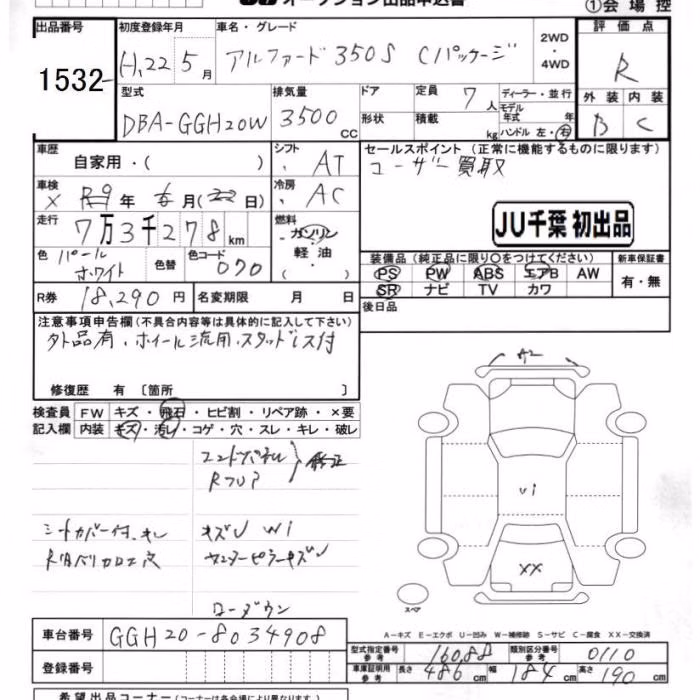 オークション出品申込書
①会場控
出品番号
1532
初度登録年月
H.22 5月
車名・グレード
アルファード 350S Cパッケージ
2WD
・
4WD
評価点
R
外装 内装
B C
型式
DBA-GGH20W
排気量
3500 cc
ドア
形状
定員 7人
積載 kg
ディーラー・並行
モデル年式 年
ハンドル 左・右
車歴 自家用・( )
シフト AT
セールスポイント (正常に機能するものに限ります)
ユーザー買取
JU千葉 初出品
車検 × R9年 6月(22日)
冷房 AC
走行 7万3千278km
燃料 ガソリン
軽油
・( )・
色 パールホワイト
色替
色コード 070
装備品 (純正品に限り〇をつけてください)
PS PW ABS エアB AW
SR ナビ TV カワ
新車保証書
有・無
R券 18,290円
名変期限 月 日
後日品
注意事項申告欄 (不具合内容等は具体的に記入して下さい)
外品有、ホイール流用、スタッドレス付
修復歴 有〔箇所 〕
検査員記入欄
FW キズ・飛石・ヒビ割・リペア跡・×要
内装 キズ・汚レ・コゲ・穴・スレ・キレ・破レ
修正
シートカバー付、キレ
キズU W1
センターピラーキズU
ローダウン
A2
U1
XX
スペア
A-キズ E-エクボ U-凹み W-補修跡 S-サビ C-腐食 XX-交換済
車台番号 GGH20-8034908
登録番号
型式指定番号 参考 16088
類別区分番号 参考 0110
車庫証明用 参考 長さ 486cm 幅 184cm 高さ 190cm
希望出品コーナー(コーナーは各会場により異なります)